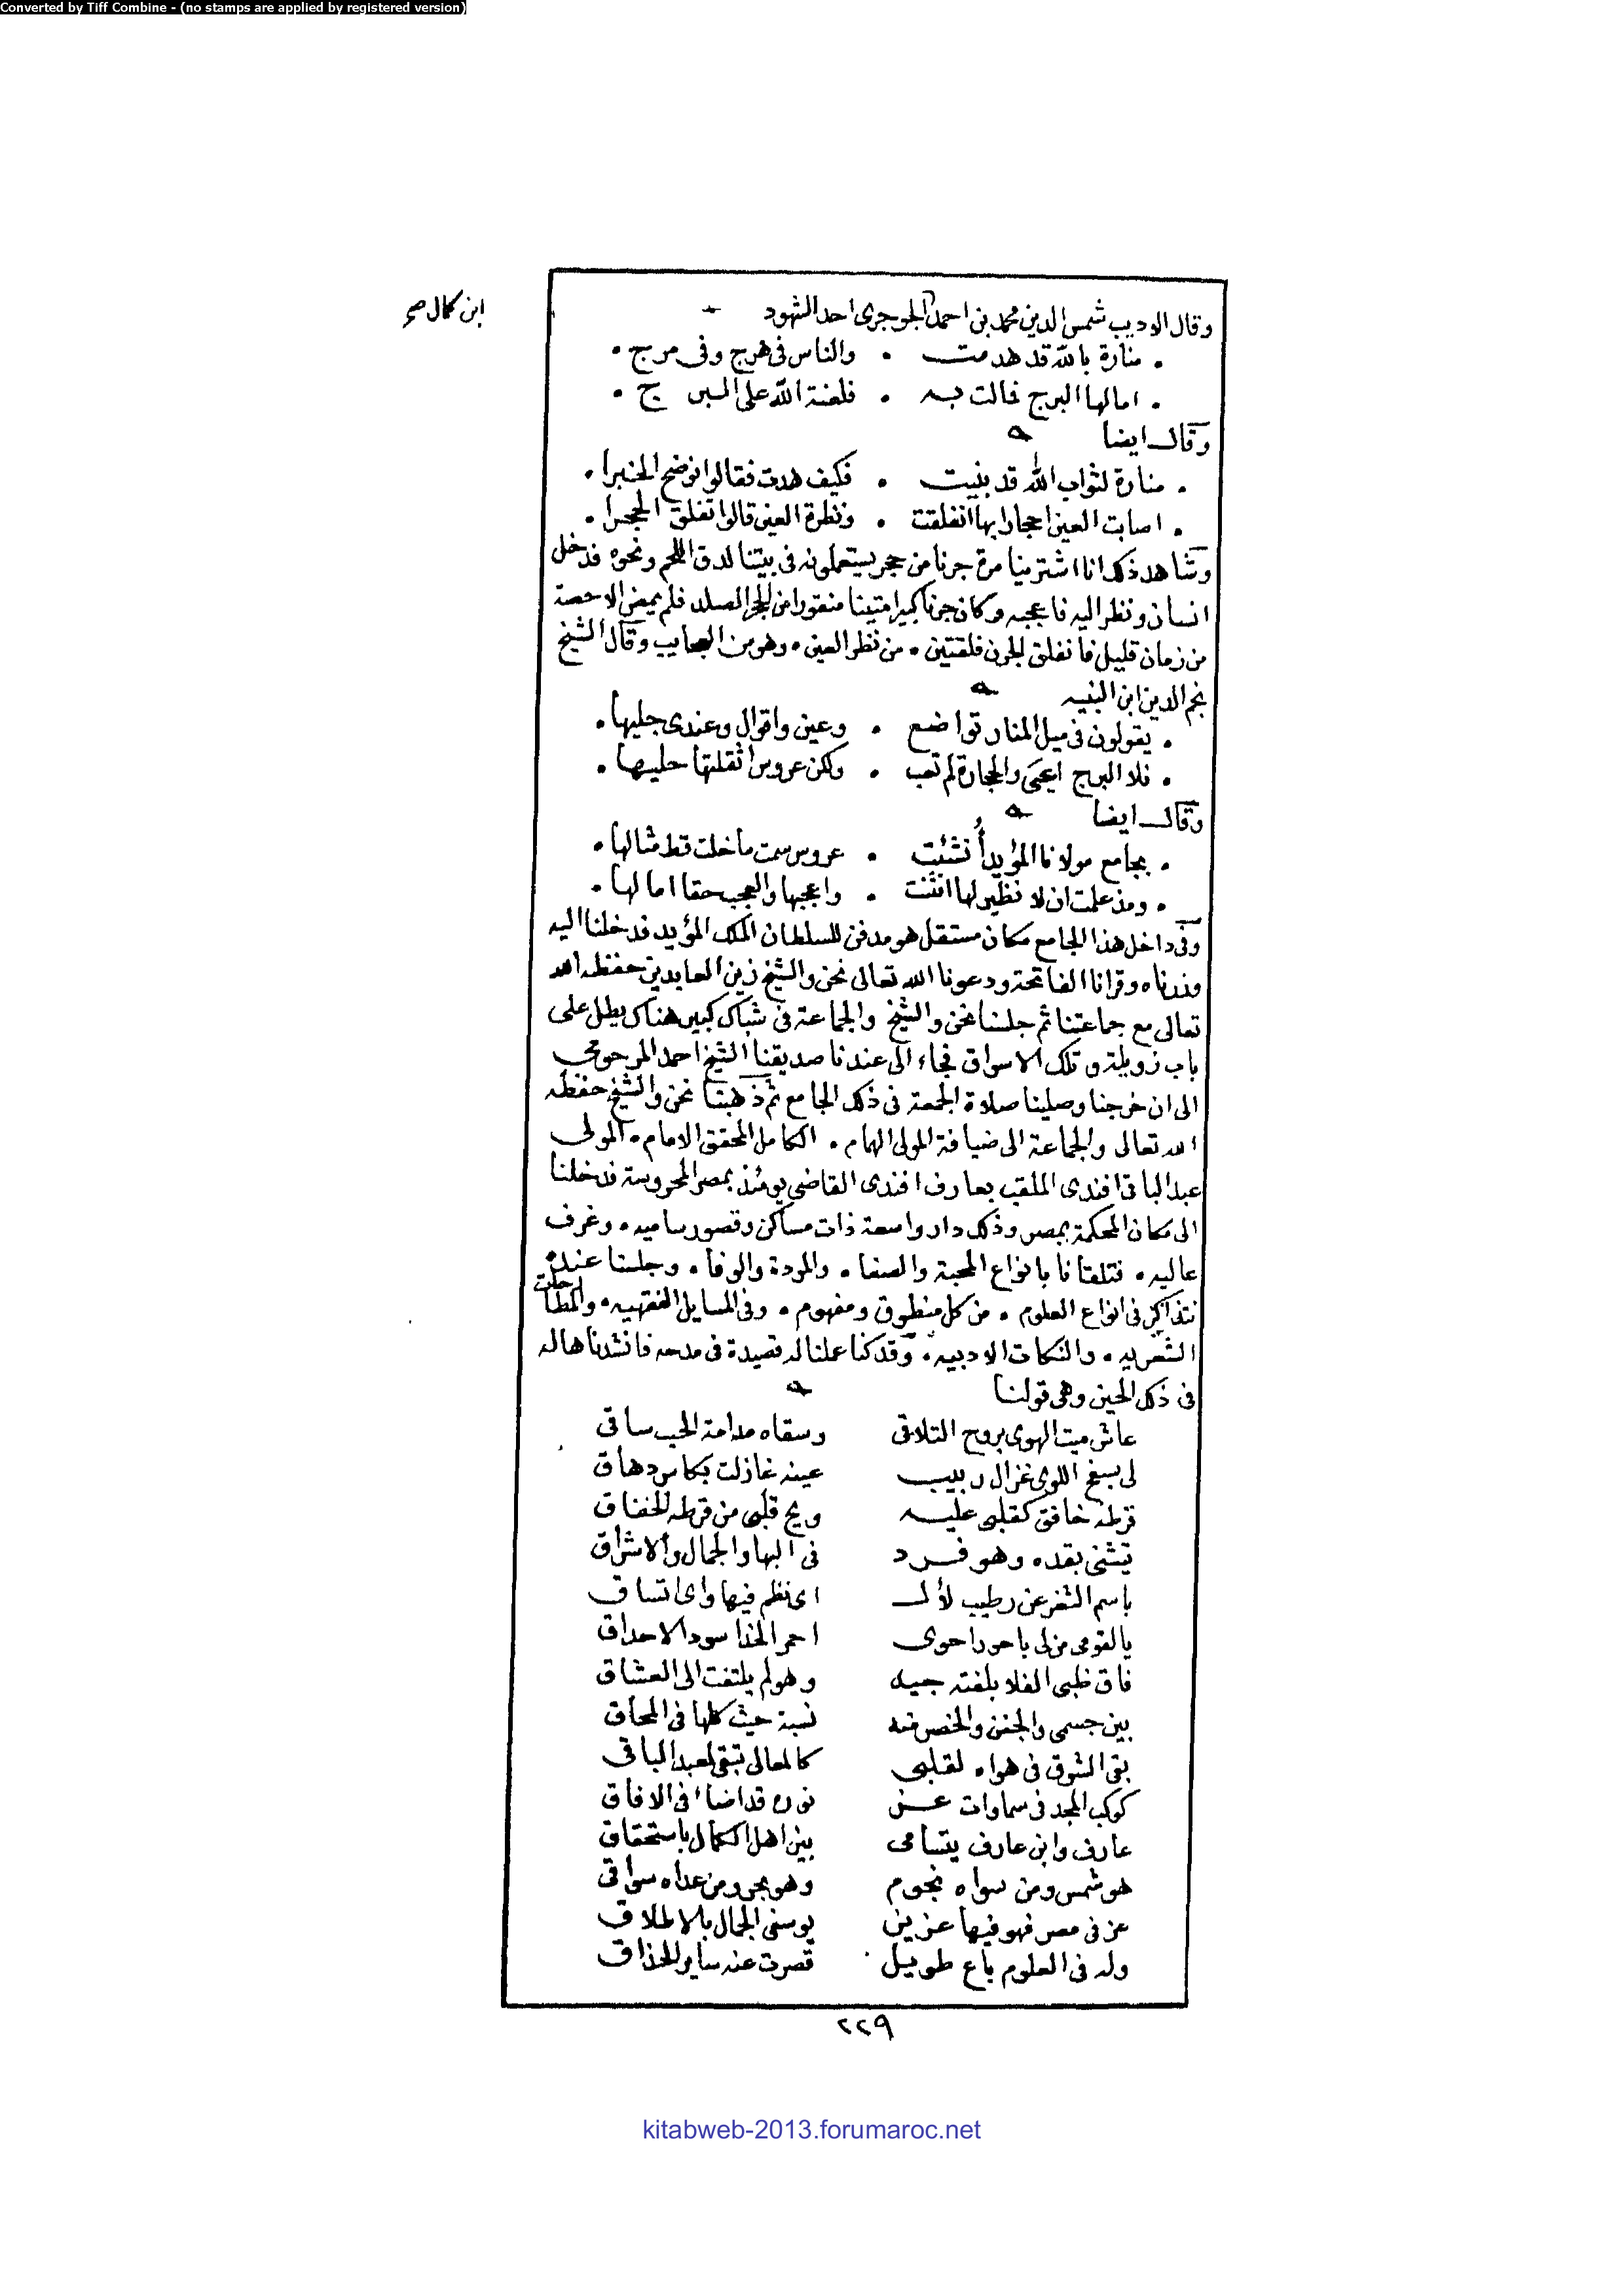 Converted by Tiff Combine - (no stamps are applied by registered version)
ابن كمال صح
وقال الاديب شمس الدين محمد بن احمد الجوجرى احد الشهود
منارة بالله قد هدمت • والناس فى هرج وفى مرج •
امالها البرج فمالت به • فلعنة الله على البرج •
وقال ايضا
منارة لثواب الله قد بنيت • فكيف هدت فقالوا نوضح الخبرا •
اصابت العين احجارا بها انفلقت • ونظرة العين قالوا تفلق الحجرا •
وشاهد ذلك انا اشترينا مرة جرنا من حجر يستعملونه فى بيتنا لدق اللحم ونحوه فدخل
انسان ونظر اليه فاعجبه وكان جرنا كبيرا متينا منقورا من الحجر الصلد فلم يمض الا حصة
من زمان قليل فانفلق الجرن فلقتين • من نظر العين • وهو من العجايب وقال الشيخ
نجم الدين ابن النبيه
يقولون فى ميل المنار تواضع • وعين واقوال وعندى جليها •
فلا البرج اعيى والحجارة لم تعب • ولكن عروس اثقلتها حليها •
وقال ايضا
بجامع مولانا المؤيد أُنشئت • عروس سمت ما خلت قط مثالها •
ومذ علمت ان لا نظير لها انثنت • واعجبها والعجب حقا امالها •
وفى داخل هذا الجامع مكان مستقل هو مدفن للسلطان الملك المؤيد فدخلنا اليه
وزرناه وقرانا الفاتحة ودعونا الله تعالى نحن والشيخ زين العابدين حفظه الله
تعالى مع جماعتنا ثم جلسنا نحن والشيخ والجماعة فى شباك كبير هناك يطل على
باب زويلة وتلك الاسواق فجاء الى عندنا صديقنا الشيخ احمد المرحومى
الى ان خرجنا وصلينا صلاة الجمعة فى ذلك الجامع ثم ذهبنا نحن والشيخ حفظه
الله تعالى والجماعة الى ضيافة المولى الهمام • الكامل المحقق الامام • المولى
عبد الباقى افندى الملقب بعارف افندى القاضى يومئذ بمصر المحروسة فدخلنا
الى مكان المحكمة بمصر وذلك دار واسعة ذات مساكن وقصور ساميه • وغرف
عاليه • فتلقانا بانواع المحبة والصفا • والمودة والوفا • وجلسنا عنده
نتذاكر فى انواع العلوم • من كل منطوق ومفهوم • وفى المسايل الفقهيه • والمطارحات
الشعريه • والنكات الادبيه • وقد كنا عملنا له قصيدة فى مدحه فانشدناها له
فى ذلك الحين وهى قولنا
عاش ميت الهوى بروح التلاقى وسقاه مدامة الحب ساقى
لى بسفح اللوى غزال ربيب عينه غازلت بكاس دهاق
قرطه خافق كقلبى عليه ويح قلبى من قرطه الخفاق
يتثنى بقده وهو فرد فى البها والجمال والاشراق
باسم الثغر عن رطيب لأل اى نظم فيها واى اتساق
يا لقومى من لى باحور احوى احمر الخد اسود الاحداق
فاق ظبى الفلا بلفتة جيد وهو لم يلتفت الى العشاق
بين جسمى والجفن والخصر منه نسبة حيث كلها فى المحاق
بقى الشوق فى هواه لقلبى كالمعالى تبقى لعبد الباقى
كوكب المجد فى سماوات عز نوره قد اضاء فى الافاق
عارف وابن عارف يتسامى بين اهل الكمال باستحقاق
هو شمس ومن سواه نجوم وهو بحر ومن عداه سواقى
عز فى مصر فهو فيها عزيز يوسفى الجمال بالاطلاق
وله فى العلوم باع طويل قصرت عنه ساير الحذاق
٢٢٩
kitabweb-2013.forumaroc.net